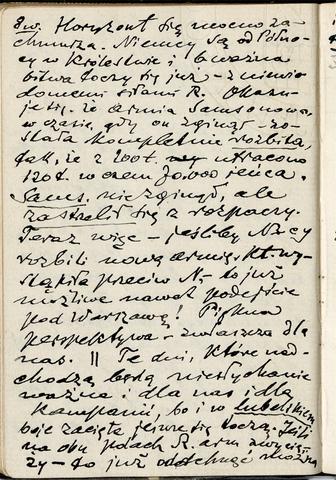 8 w. Horyzont się mocno za-
chmurza. Niemcy są od Półno-
cy w Królestwie i poważna
bitwa toczy się już – z niewia-
domemi siłami R. Okazu-
je się, że armia Samsonowa,
w czasie, gdy on zginął – zo-
stała kompletnie rozbita,
tak, że z 200 t. utracono
120 t. w czem 70.000 jeńca.
Sams. nie zginął, ale
zastrzelił się z rozpaczy.
Teraz więc – jeśliby Niemcy
rozbili nową armię, kt. wy-
stąpiła przeciw N. – to już
możliwe nawet podejście
pod Warszawę! Piękna
perspektywa – zwłaszcza dla
nas. || Te dni, które nad-
chodzą będą niesłychanie
ważne i dla nas i dla
kampanii, bo i w Lubelskiem
boje zacięte jeszcze się toczą. Jeśli
na obu polach R. arm. zwycię-
ży – to już odetchnąć można